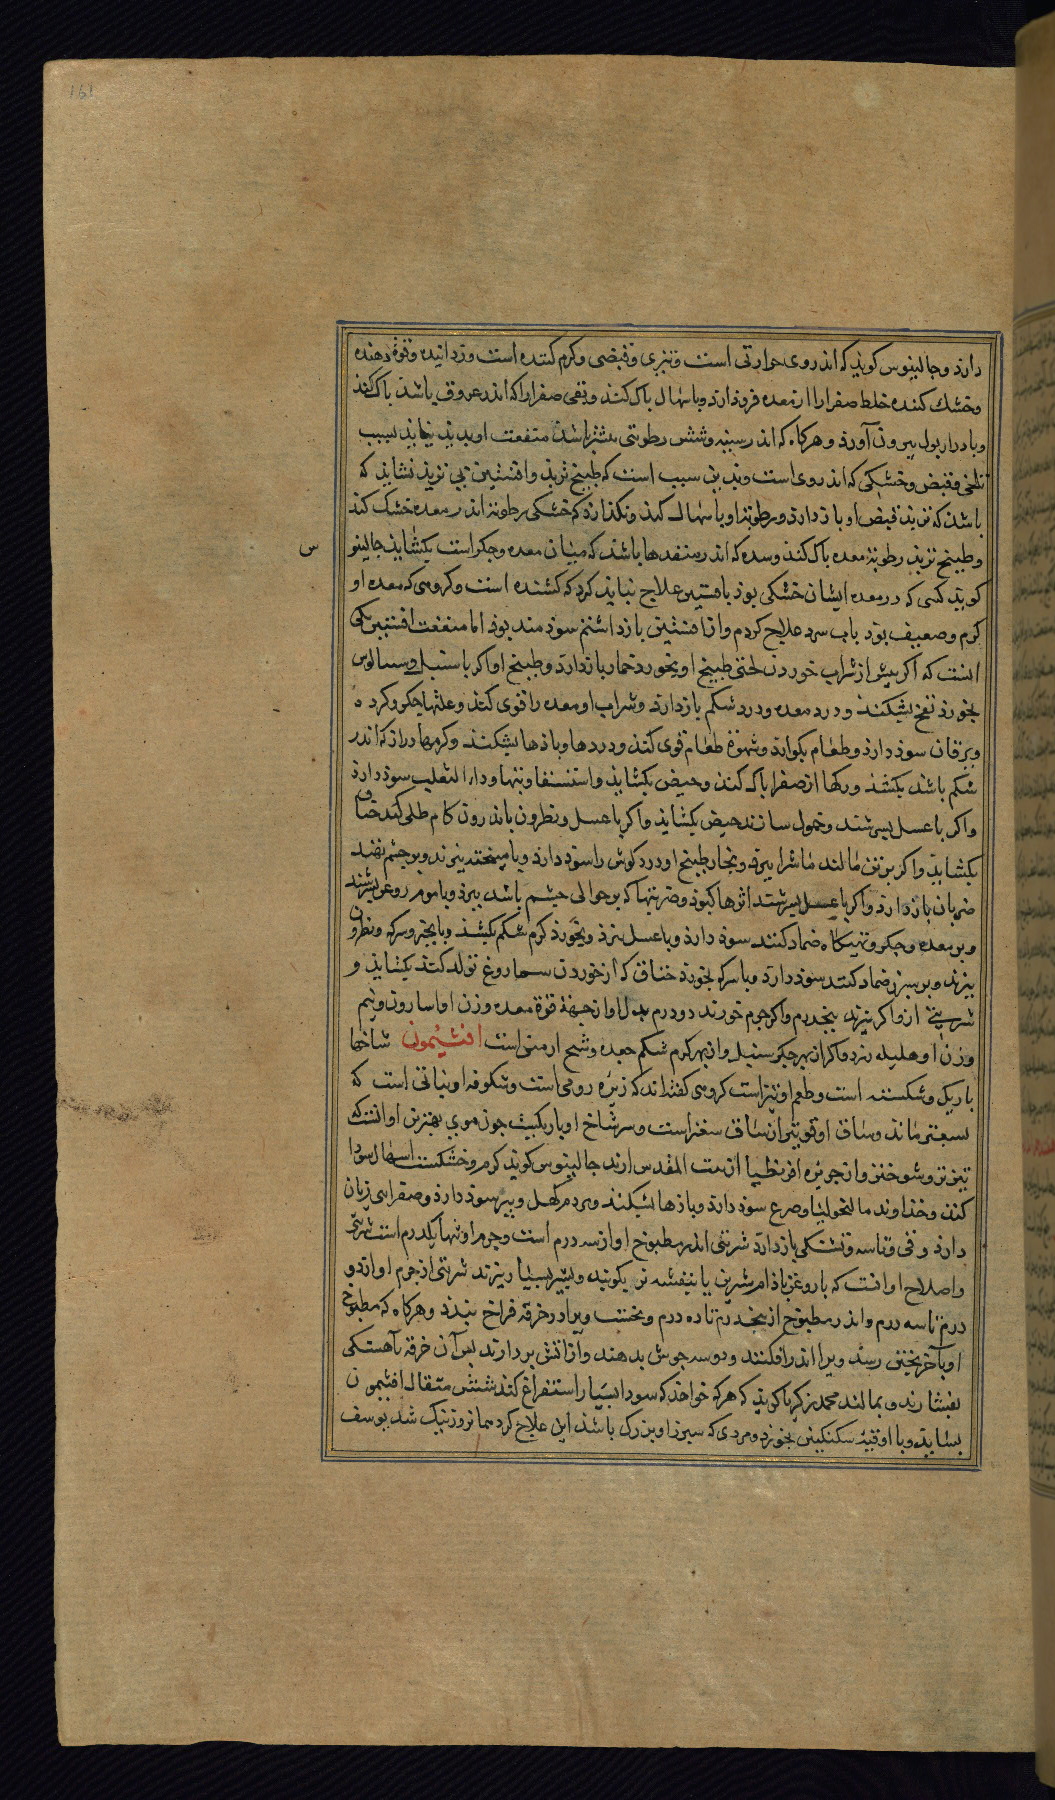 161
دارد و جالینوس کوید که اندر وی حرارتی است و تیزی و قبضی و کرم کننده است و زدایده و قوة دهنده
و خشک کننده خلط صفرا را از معده فروذ ارد و باسهال پاک کند و تقی صفرا را که اندر عروق باشد پاک کند
و بادرار بول بیرون آورد و هرکاه که اندر سینه و شش رطوبتی بیشتر باشد منفعت او پدید نیاید بسبب
تلخی و قبض و خشکی که اندر وی است و بدین سبب است که طبیخ تربد و افسنتین بی تربد نشاید که
باشد که تربد قبض او باز دارد و رطوبتها و باسهال کند و نکذارد که خشکی رطوبتها اندر معده خشک کند
و طبیخ تربد رطوبة معده پاک کند و سده که اندر منفدها باشد که میان معده و جکر است بکشاید جالینو
س
کوید کسی که در معده ایشان خشکی بوذ بافسنتین علاج نباید کرد که کشنده است و کروهی که معده او
کرم و ضعیف بوذ باب سرد علاج کردم و از افسنتین باز داشتم سوذمند بوذ اما منفعت افسنتین یکی
انست که اکر پیش از شراب خوردن لختی طبیخ او بخورد خمار باز دارد و طبیخ او اکر با سنبل و سسالیوس
بخورد نفخ بشکند و درد معده و درد شکم باز دارد و شراب او معده را قوی کند و علتهاء جکر و کرده
و یرقان سوذ دارد و طعام بکوارد و شهوة طعام قوی کند و دردها و باذها بشکند و کرمهاء دراز که اندر
شکم باشد بکشد و رکها از صفرا پاک کند و حیض بکشاید و استسقا و تبها و داء الثعلب سوذ دارد
و اکر با عسل بسرشند و حمول سازند حیض بکشاید و اکر با عسل و نطرون باندرون کام طلی کنند خناق
بکشاید و اکر بر تن مالند ماشرا ببرد و بخار طبیخ او درد کوش را سوذ دارد و با میبختج بپزند و بر چشم نهند
ضربان باز دارد و اکر با عسل بسرشند اثرها کبوذ و ضربتها که بر حوالی چشم باشد ببرد و با موم روغن بسرشند
و بر معده و جکر و تهیکاه ضماد کنند سوذ دارد و با عسل بپزد و بخورد کرم شکم بکشد و با انجیر و سرکه و نطرون
بپزند و بر سپرز ضماد کنند سوذ دارد و با سرکه بخورد خناق که از خوردن سماروغ تولد کند بکشاید و
شربتی ازو اکر بپزند پنجدرم و اکر جرم خورند دو درم بدل او از جهة قوة معده وزن او اسارون و نیم
وزن او هلیله زرد و اکر از بهر جکر سنبل و از بهر کرم شکم جعده و شیح ارمنی است افثیمون شاخها
باریک و شکسته است و طعم او تیز است کروهی کفته اند که زیره رومی است و شکوفه او نباتی است که
بسعتر ماند و ساق او قویتر از ساق سعتر است و سر شاخ او باریکست چون موی بهترین او انست که
تیزتر و سرختر و از جزیره اقریطیا از بیت المقدس ارند جالینوس کوید کرم و خشکست اسهال سودا
کند و خداوند مالنخولیا و صرع سوذ دارد و باذها بشکند و مردم کهل و پیر سوذ دارد و صفرایی زیان
دارد و قی و تاسه و تشنکی باز دارد شربتی اندر مطبوخ او از سه درم است و جرم او تنها یکدرم است شربتی
و اصلاح او انست که با روغن باذام شیرین یا بنفشه تر بکوبند و بشیر بسیار بپزند شربتی از جرم او از دو
درم تا سه درم و اندر مطبوخ از پنجدرم تا ده درم و نخست ویرا در خرقه فراخ ببندد و هرکاه که مطبوخ
او باخر پختن رسد ویرا اندر افکنند و دو سه جوش بدهند و از اتش بردارند پس آن خرقه بآهستکی
بفشارند و بمالند محمد زکریا کوید که هرکه خواهد که سودا بسیار استفراغ کند شش مثقال افثیمون
بساید و با اوقیه سکنکبین بخورد و مردی که سپرز او بزرک باشد این علاج کردم تا نیک شد یوسف